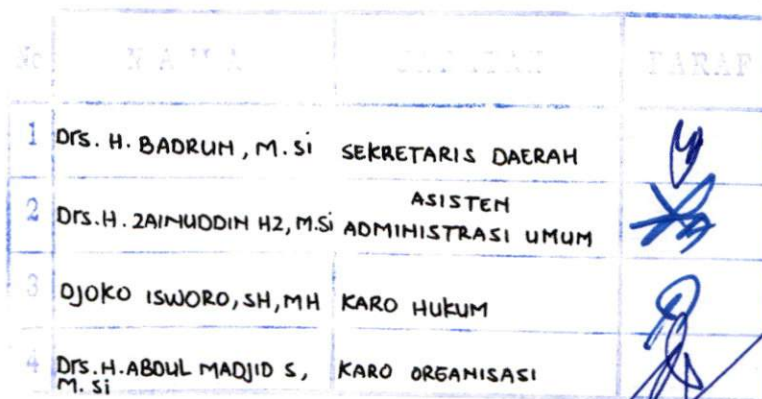 No NAMA JABATAN PARAF
1 Drs. H. BADRUN, M.Si SEKRETARIS DAERAH
2 Drs.H. ZAINUDDIN HZ, M.Si ASISTEN
ADMINISTRASI UMUM
3 DJOKO ISWORO, SH, MH KARO HUKUM
4 Drs.H.ABDUL MADJID S,
M.Si KARO ORGANISASI